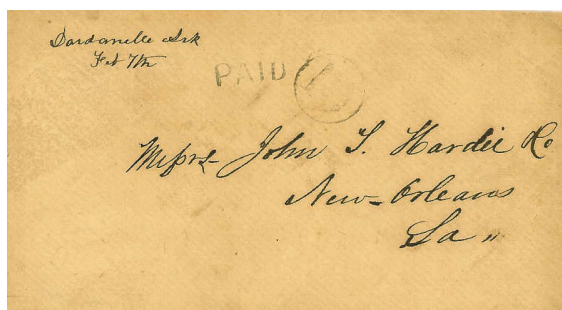 Dardanelle Ark
Feb 7th
PAID
Messrs John T. Hardie & Co
New-Orleans
La "